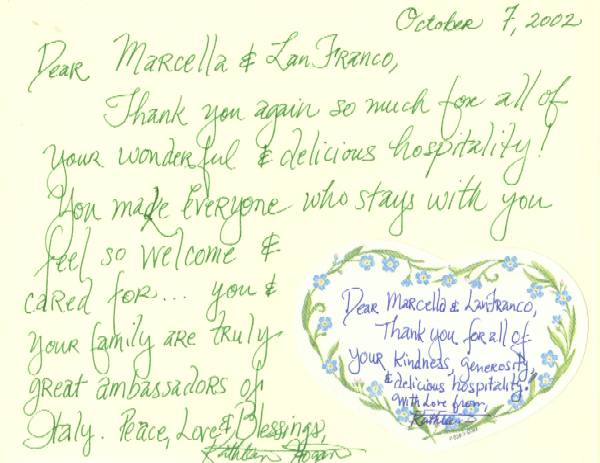 October 7, 2002
Dear Marcella & LanFranco,
Thank you again so much for all of
your wonderful & delicious hospitality!
You make everyone who stays with you
feel so welcome &
cared for... you &
your family are truly
great ambassadors of
Italy. Peace, Love & Blessings,
Kathleen Hogan
Dear Marcella & LanFranco,
Thank you for all of
your kindness, generosity
& delicious hospitality!
With Love from,
Kathleen